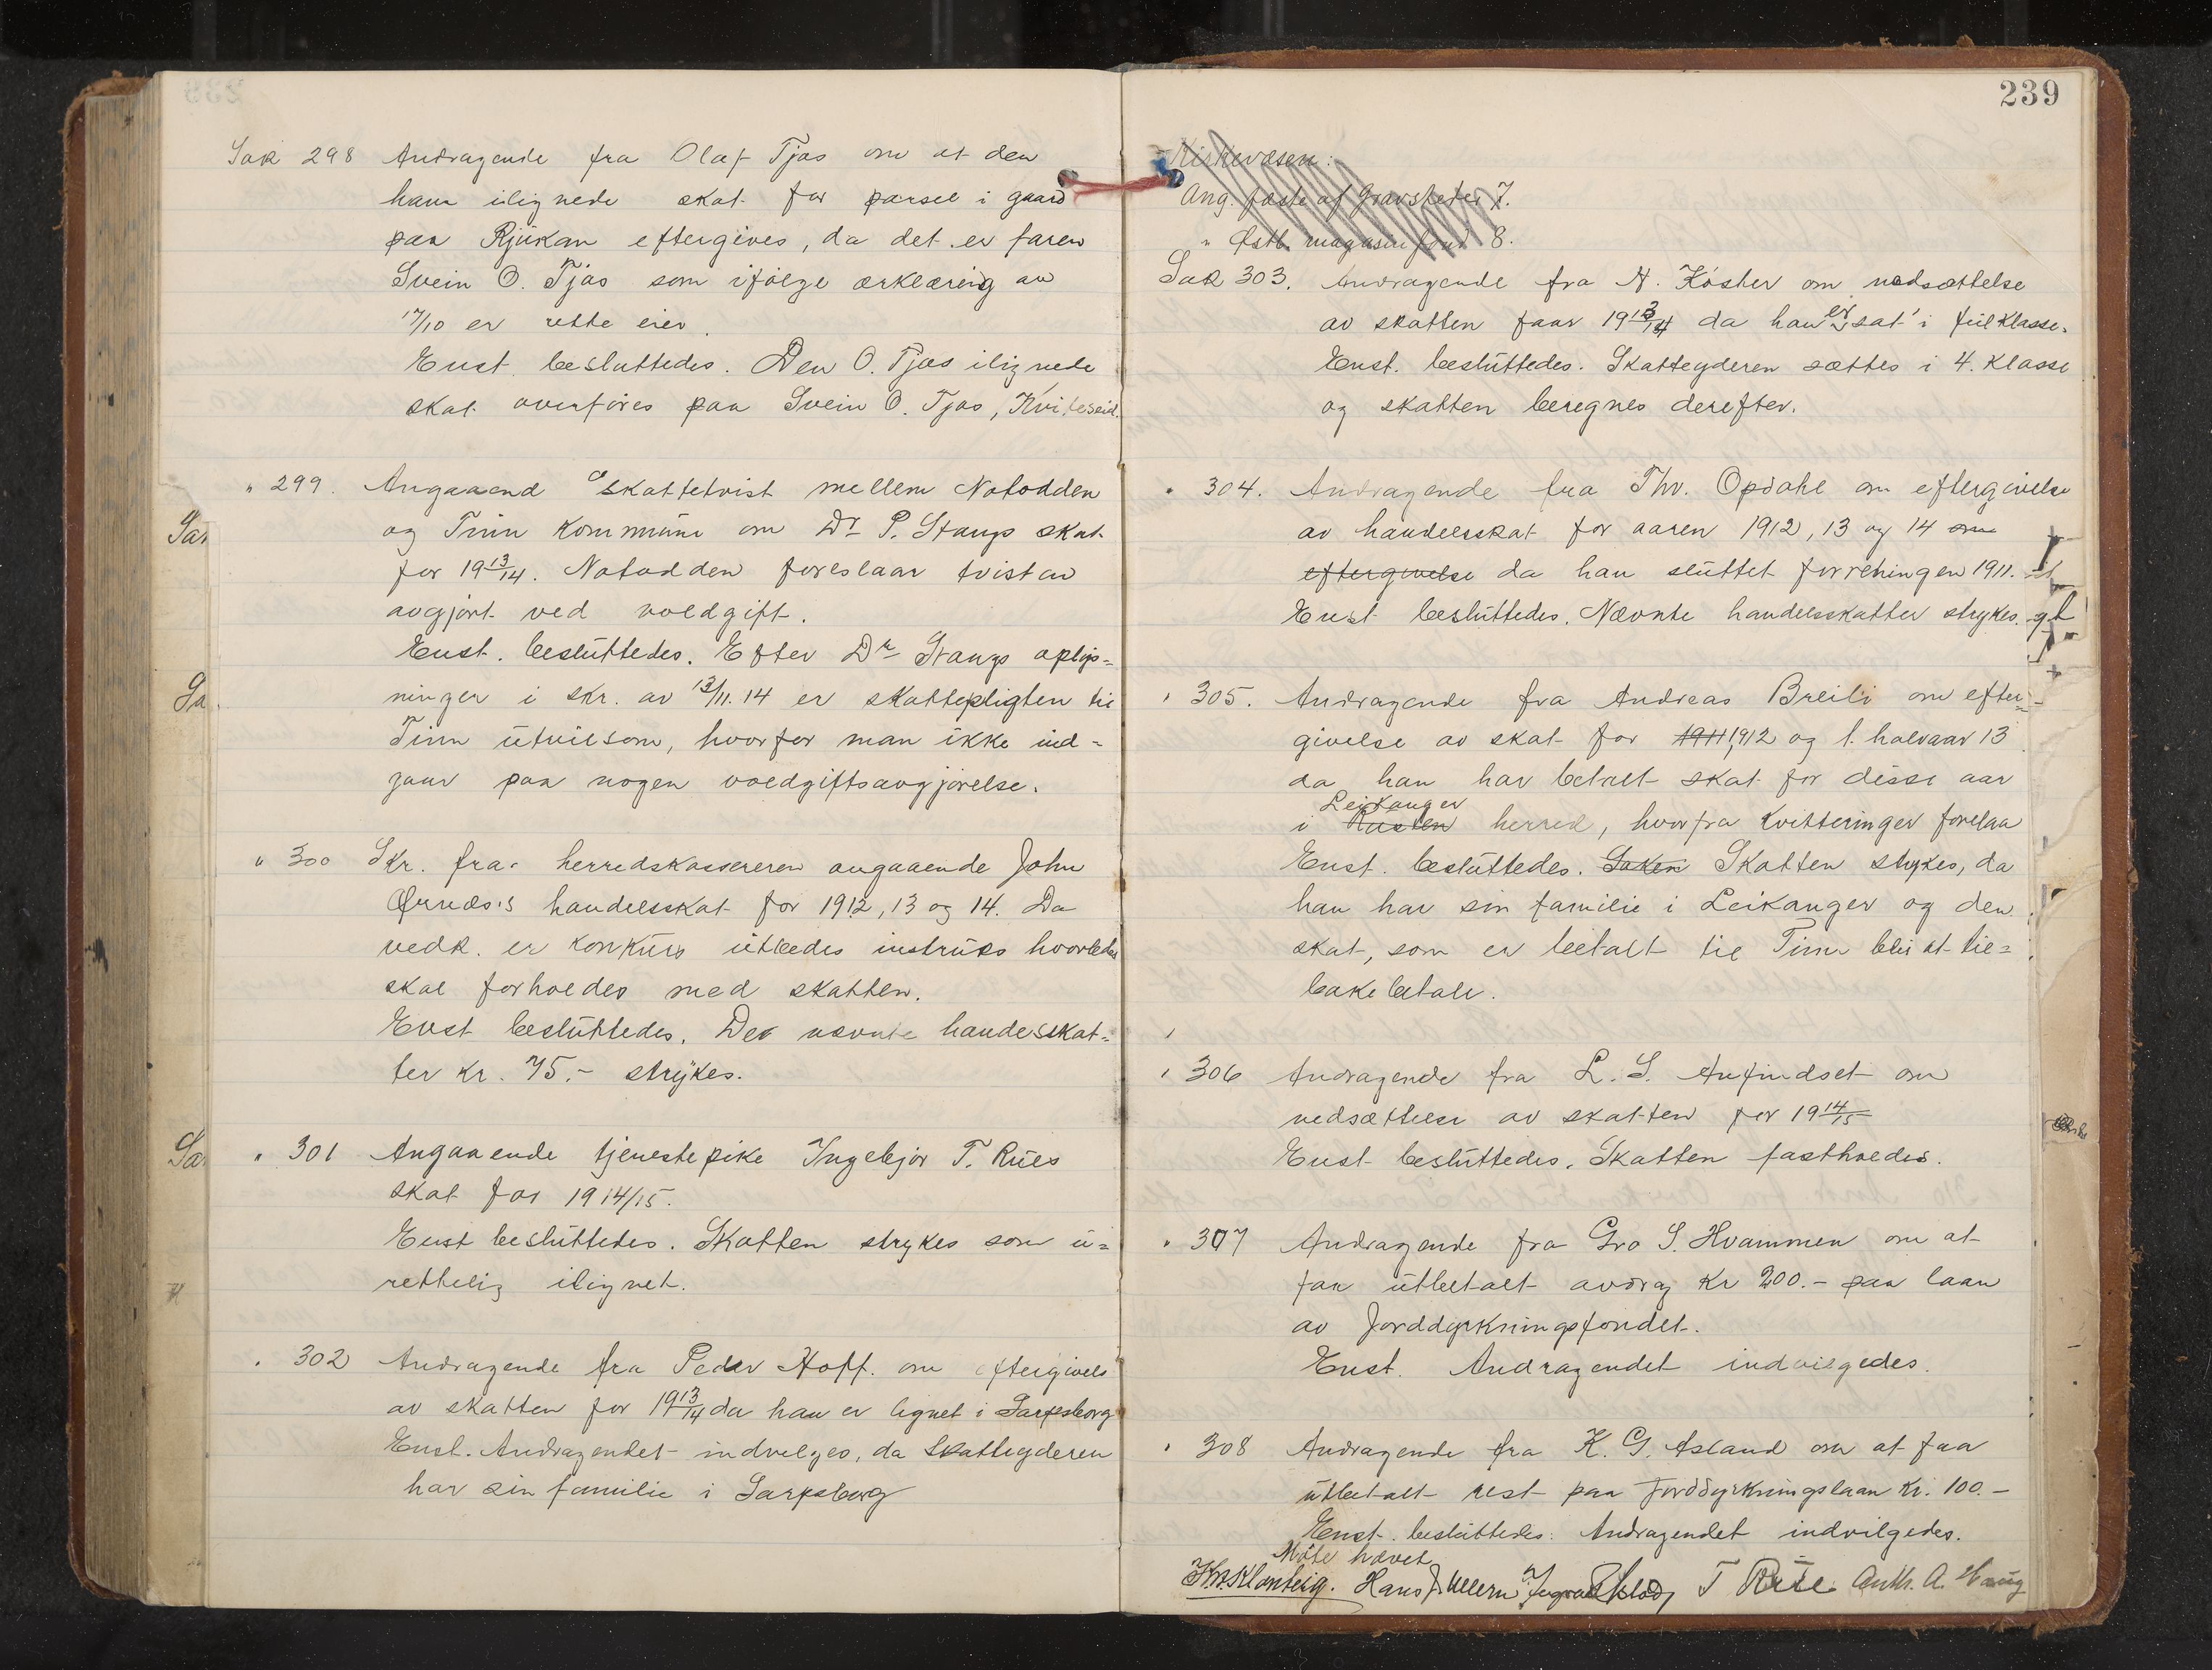 Sak 298 Andragende fra Olaf Tjøs om at den
ham ilignede skat for parsel i gaard
paa Rjukan eftergives, da det er faren
Svein O. Tjøs som ifølge erklæring av
17/10 er rette eier.
Enst. besluttedes. Den O. Tjøs ilignede
skat overføres paa Svein O. Tjøs, Kviteseid.
" 299. Angaaend skattetvist mellem Notodden
og Tinn kommune om Dr P. Stangs skat
for 1913/14. Notodden foreslaar tvisten
avgjort ved voldgift.
Enst. besluttedes. Efter Dr Stangs oplys=
ninger i skr. av 13/11.14 er skattepligten til
Tinn utvilsom, hvorfor man ikke ind=
gaar paa nogen voldgiftsavgjørelse.
" 300 Skr. fra herredskassereren angaaende John
Ørnes's handelsskat for 1912, 13 og 14. Da
vedk. er konkurs utbedes instruks hvorledes
skal forholdes med skatten.
Enst besluttedes. De nævnte handesskat=
ter kr. 75.- strykes.
" 301 Angaaende tjenestepike Ingebjør T. Rues
skat for 1914/15.
Enst besluttedes. Skatten strykes som u=
rettelig ilignet.
" 302 Andragende fra Peder Hoff. om eftergivels
av skatten for 1913/14 da han er lignet i Sarpsborg
Enst. Andragendet indvilges, da skatteyderen
har sin familie i Sarpsborg
239
Kirkevæsen:
Ang. fæste af Gravsteder 7.
" Østb. magasinfond 8.
Sak 303. Andragende fra N. Köster om nedsættelse
av skatten faar 1913/14 da han er sat i feil klasse.
Enst. besluttedes. Skatteyderen sættes i 4. klasse
og skatten beregnes derefter.
" 304. Andragende fra Thv. Opdahl om eftergivelse
av handelsskat for aaren 1912, 13 og 14 om
eftergivelse da han sluttet forretningen 1911.
Enst besluttedes. Nævnte handelsskatter strykes.
" 305. Andragende fra Andreas Breili om efter=
givelse av skat for 1911 1912 og 1. halvaar 13
da han har betalt skat for disse aar
Leikanger
i herred, hvorfra kvitteringer forelaa
Enst. besluttedes. Saken Skatten strykes, da
han har sin familie i Leikanger og den
skat, som er betalt til Tinn blir at til=
bakebetale.
" 306 Andragende fra L. S. Anfindset om
nedsættelse av skatten for 1914/15
Enst besluttedes. Skatten fastholdes.
" 307 Andragende fra Gro S. Hvammen om at
faa utbetalt avdrag kr 200.- paa laan
av Jorddyrkningsfondet.
Enst. Andragendet indvilgedes.
" 308 Andragende fra K. G. Asland om at faa
utbetalt rest paa jorddyrkningslaan kr. 100.-
Enst. besluttedes. Andragendet indvilgedes.
Møte hævet
Hans J. T Rue Anth. A. Haug